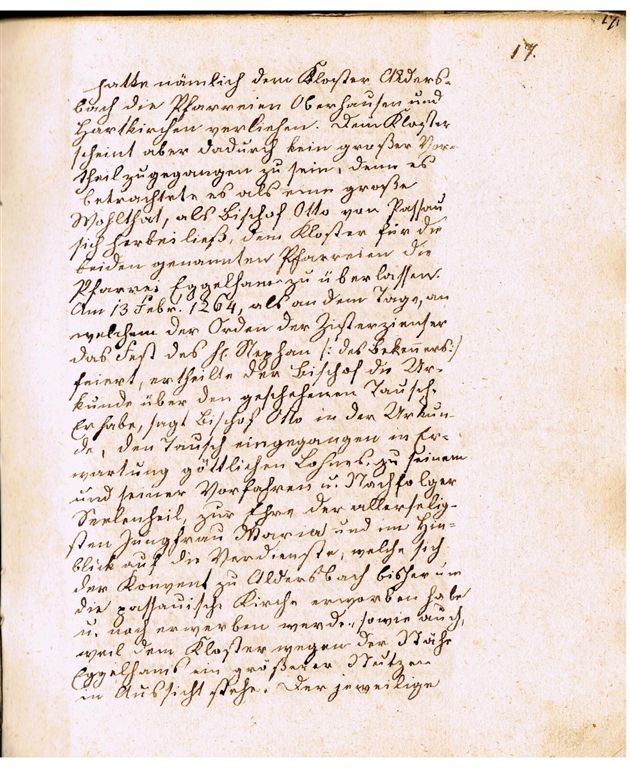 17.
17.
hatte nämlich dem Kloster Alders-
bach die Pfarreien Oberhausen und
Hartkirchen verliehen. Dem Kloster
scheint aber dadurch kein großer Vor-
theil zugegangen zu sein, denn es
betrachtete es als eine große
Wohlthat, als Bischof Otto von Passau
sich herbeiließ, dem Kloster für die
beiden genannten Pfarreien die
Pfarrei Eggelham zu überlassen.
Am 13 Febr. 1264, als an dem Tage, an
welchem der Orden der Zisterzienser
das Fest des hl. Stephan /: des Bekenners :/
feiert, ertheilte der Bischof die Ur-
kunde über den geschehenen Tausch.
Er habe, sagt Bischof Otto in der Urkun-
de, den Tausch eingegangen in Er-
wartung göttlichen Lohnes, zu seinem
und seiner Vorfahren u. Nachfolger
Seelenheil, zur Ehre der allerselig-
sten Jungfrau Maria und im Hin-
blick auf die Verdienste, welche sich
der Konvent zu Aldersbach bisher um
die passauische Kirche erworben habe
u. noch erwerben werde, sowie auch,
weil dem Kloster wegen der Nähe
Eggelhams ein größerer Nutzen
in Aussicht stehe. Der jeweilige